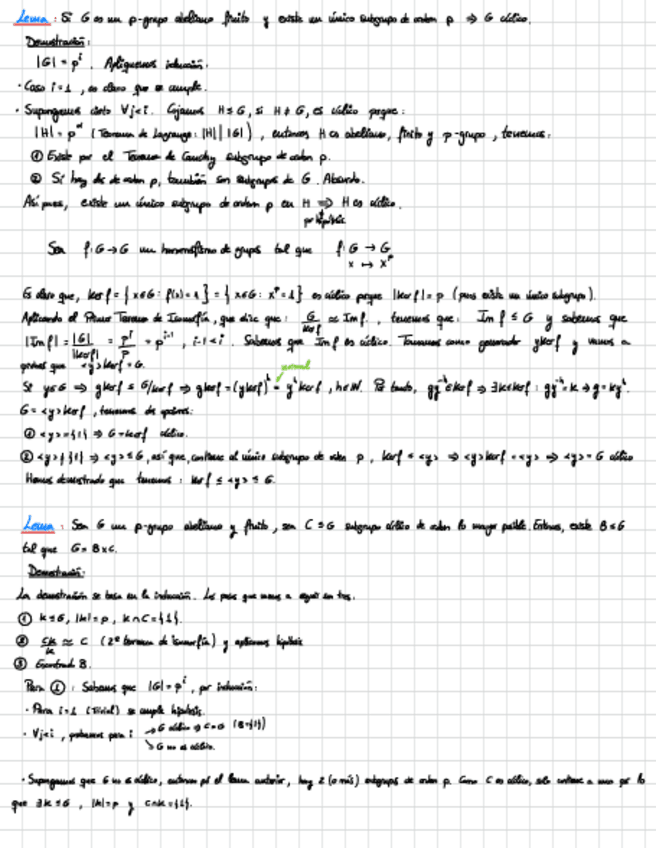 Lema: Si G es un p-grupo abeliano finito y existe un único subgrupo de orden p ⇒ G cíclico.
Demostración:
|G| = p^i. Apliquemos inducción.
· Caso i=1, es claro que se cumple.
· Supongamos cierto ∀j<i. Cojamos H≤G, si H≠G, es cíclico porque:
|H| = p^n (Teorema de Lagrange: |H| | |G|), entonces H es abeliano, finito y p-grupo, tenemos:
① Existe por el Teorema de Cauchy subgrupo de orden p.
② Si hay dos de orden p, también son subgrupos de G. Absurdo.
Así pues, existe un único subgrupo de orden p en H ⇒ H es cíclico.
por hipótesis
Sea f: G→G un homomorfismo de grupos tal que f: G → G
x ↦ x^p
Es claro que, Ker f = { x∈G: f(x)=1 } = { x∈G: x^p=1 } es cíclico porque |Ker f| = p (pues existe un único subgrupo).
Aplicando el Primer Teorema de Isomorfía, que dice que: G/Ker f ≃ Im f, tenemos que: Im f ≤ G y sabemos que
|Im f| = |G|/|Ker f| = p^i/p = p^{i-1}, i-1<i. Sabemos que Im f es cíclico. Tomamos como generador y Ker f y vamos a
probar que <y> Ker f = G.
normal
Si g∈G ⇒ g Ker f ∈ G/Ker f ⇒ g Ker f = (y Ker f)^h = y^h Ker f, h∈N. Por tanto, gy^{-h}∈Ker f ⇒ ∃k∈Ker f: gy^{-h}=k → g=ky^h.
G = <y> Ker f, tenemos dos opciones:
① <y>={1} ⇒ G=Ker f cíclico.
② <y>≠{1} ⇒ <y>≤G, así que, contiene al único subgrupo de orden p, Ker f ≤ <y> ⇒ <y> Ker f = <y> ⇒ <y>=G cíclico
Hemos demostrado que tenemos: Ker f ≤ <y> ≤ G.
Lema: Sea G un p-grupo abeliano y finito, sea C≤G subgrupo cíclico de orden lo mayor posible. Entonces, existe B≤G
tal que G=B×C.
Demostración:
La demostración se basa en la inducción. Los pasos que vamos a seguir son tres.
① K≤G, |K|=p, K∩C={1}.
② CK/K ≃ C (2º teorema de isomorfía) y aplicamos hipótesis
③ Encontrado B.
Para ①: Sabemos que |G|=p^i, por inducción:
· Para i=1 (Trivial) se cumple hipótesis.
· ∀j<i, probamos para i → G cíclico ⇒ C=G (B={1})
↘ G no es cíclico.
· Supongamos que G no es cíclico, entonces por el lema anterior, hay 2 (o más) subgrupos de orden p. Como C es cíclico, solo contiene a uno por lo
que ∃K≤G, |K|=p y C∩K={1}.